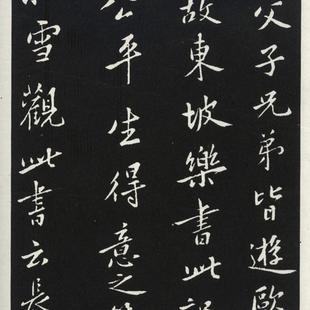 父子兄弟皆遊歐
故東坡樂書此記
公平生得意之筆
雪觀此書云長